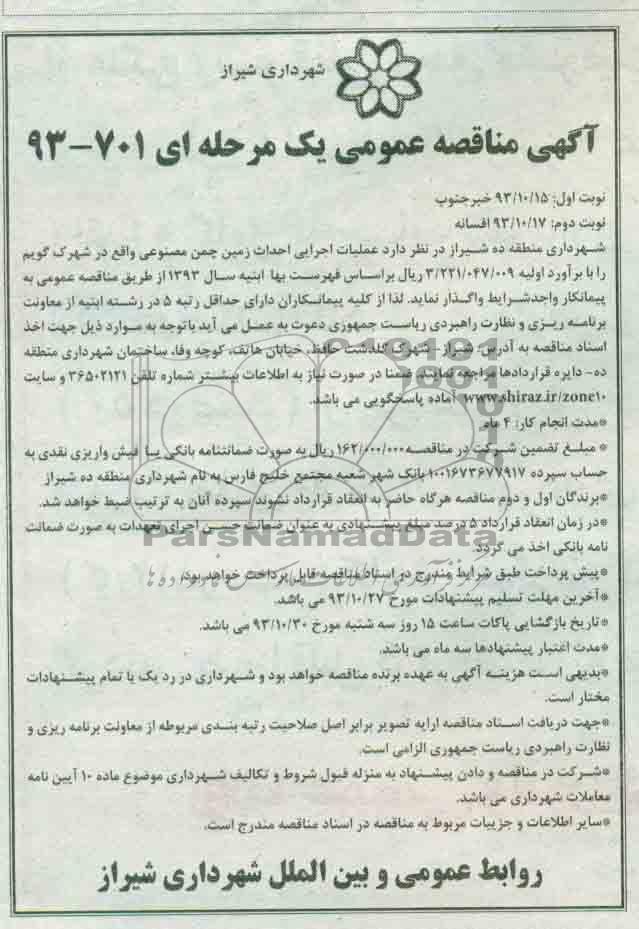 شهرداری شیراز
آگهی مناقصه عمومی یک مرحله ای ۷۰۱-۹۳
نوبت اول: ۹۳/۱۰/۱۵ خبرجنوب
نوبت دوم: ۹۳/۱۰/۱۷ افسانه
شهرداری منطقه ده شیراز در نظر دارد عملیات اجرایی احداث زمین چمن مصنوعی واقع در شهرک گویم
را با برآورد اولیه ۳/۲۲۱/۰۴۷/۰۰۹ ریال براساس فهرست بها ابنیه سال ۱۳۹۳ از طریق مناقصه عمومی به
پیمانکار واجدشرایط واگذار نماید. لذا از کلیه پیمانکاران دارای حداقل رتبه ۵ در رشته ابنیه از معاونت
برنامه ریزی و نظارت راهبردی ریاست جمهوری دعوت به عمل می آید باتوجه به موارد ذیل جهت اخذ
اسناد مناقصه به آدرس: شیراز -شهرک گلدشت حافظ، خیابان هاتف، کوچه وفا، ساختمان شهرداری منطقه
ده- دایره قراردادها مراجعه نمایند. ضمنا در صورت نیاز به اطلاعات بیشتر شماره تلفن ۳۶۵۰۲۱۲۱ و سایت
www.shiraz.ir/zone۱۰ آماده پاسخگویی می باشد.
*مدت انجام کار: ۴ ماه
* مبلغ تضمین شرکت در مناقصه ۱۶۲/۰۰۰/۰۰۰ ریال به صورت ضمانتنامه بانکی یا فیش واریزی نقدی به
حساب سپرده ۱۰۰۱۶۷۳۶۷۷۹۱۷ بانک شهر شعبه مجتمع خلیج فارس به نام شهرداری منطقه ده شیراز
*برندگان اول و دوم مناقصه هرگاه حاضر به انعقاد قرارداد نشوند سپرده آنان به ترتیب ضبط خواهد شد.
*در زمان انعقاد قرارداد ۵ درصد مبلغ پیشنهادی به عنوان ضمانت حسن اجرای تعهدات به صورت ضمانت
نامه بانکی اخذ می گردد.
*پیش پرداخت طبق شرایط مندرج در اسناد مناقصه قابل پرداخت خواهد بود.
*آخرین مهلت تسلیم پیشنهادات مورخ ۹۳/۱۰/۲۷ می باشد.
*تاریخ بازگشایی پاکات ساعت ۱۵ روز سه شنبه مورخ ۹۳/۱۰/۳۰ می باشد.
*مدت اعتبار پیشنهادها سه ماه می باشد.
*بدیهی است هزینه آگهی به عهده برنده مناقصه خواهد بود و شهرداری در رد یک یا تمام پیشنهادات
مختار است.
*جهت دریافت اسناد مناقصه ارایه تصویر برابر اصل صلاحیت رتبه بندی مربوطه از معاونت برنامه ریزی و
نظارت راهبردی ریاست جمهوری الزامی است.
*شرکت در مناقصه و دادن پیشنهاد به منزله قبول شروط و تکالیف شهرداری موضوع ماده ۱۰ آیین نامه
معاملات شهرداری می باشد.
*سایر اطلاعات و جزییات مربوط به مناقصه در اسناد مناقصه مندرج است.
روابط عمومی و بین الملل شهرداری شیراز
ParsNamadData